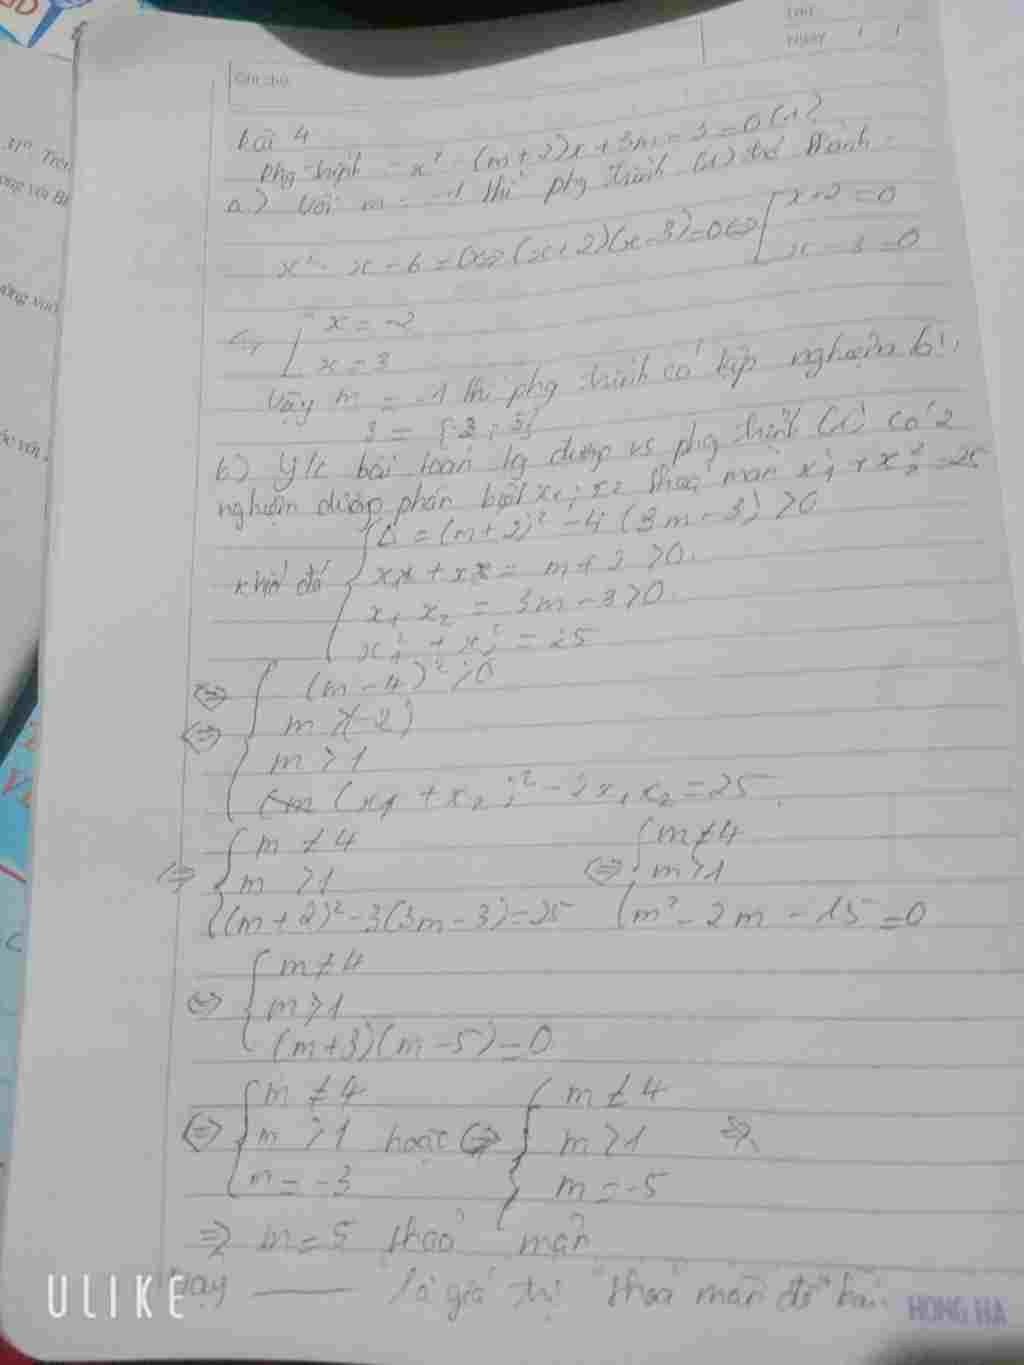 Ghi chú
NGÀY / /
bài 4
phg trình = x² - (m+2)x + 3m - 3 = 0 (1)
a.) Với m = -1 thì phg trình (1) trở thành
x² - x - 6 = 0 <=> (x+2)(x-3)=0 <=> [ x+2=0
x-3=0
<=> [ x = -2
x = 3
Vậy m = -1 thì phg trình có tập nghiệm
b) Y/c bài toán tg đương vs phg trình (1) có 2
nghiệm dương phân biệt x₁; x₂ thoả mãn x₁² + x₂² = 25
khi đó { Δ = (m+2)² - 4(3m-3) > 0
+ = m+2 > 0
x₁ x₂ = 3m - 3 > 0
x₁² + x₂² = 25
<=> { (m-4)² > 0
<=> m > (-2)
m > 1
(x₁ + x₂)² - 2x₁x₂ = 25
<=> { m ≠ 4 <=> { m ≠ 4
m > 1 m > 1
(m+2)² - 3(3m-3) = 25 m² - 2m - 15 = 0
<=> { m ≠ 4
m > 1
(m+3)(m-5) = 0
<=> { m ≠ 4 { m ≠ 4
m > 1 hoặc <=> m > 1 =>
m = -3 m = -5
=> m = 5 thoả mãn
Vậy —— là giá trị thoả mãn đề bài
ULIKE
HONG HA